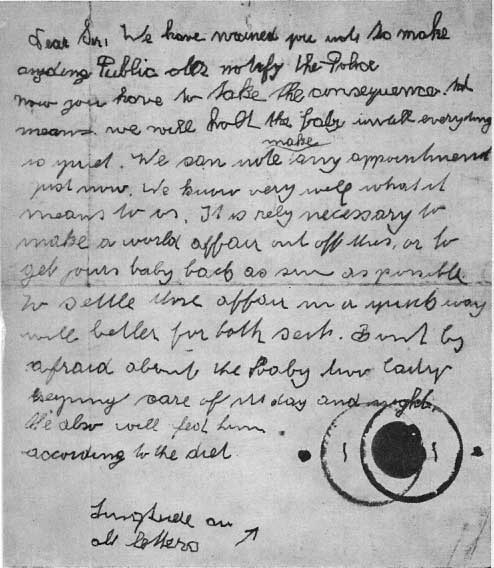 Dear Sir, We have warned you note to make
anyding Public also notify the Police
now you have to take the consequence. ths
means we will holt the baby untill everyding
is quiet. We can note make any appointment
just now. We know very well what it
means to us. It is rely necessary to
make a world affair out off this, or to
get yours baby back as sun as possible.
To settle those affair in a quick way
will better for both seits. Dont by
afraid about the baby two ladys
keeping care of its day and night.
We also will fed him
according to the diet.
Singtude on
all letters